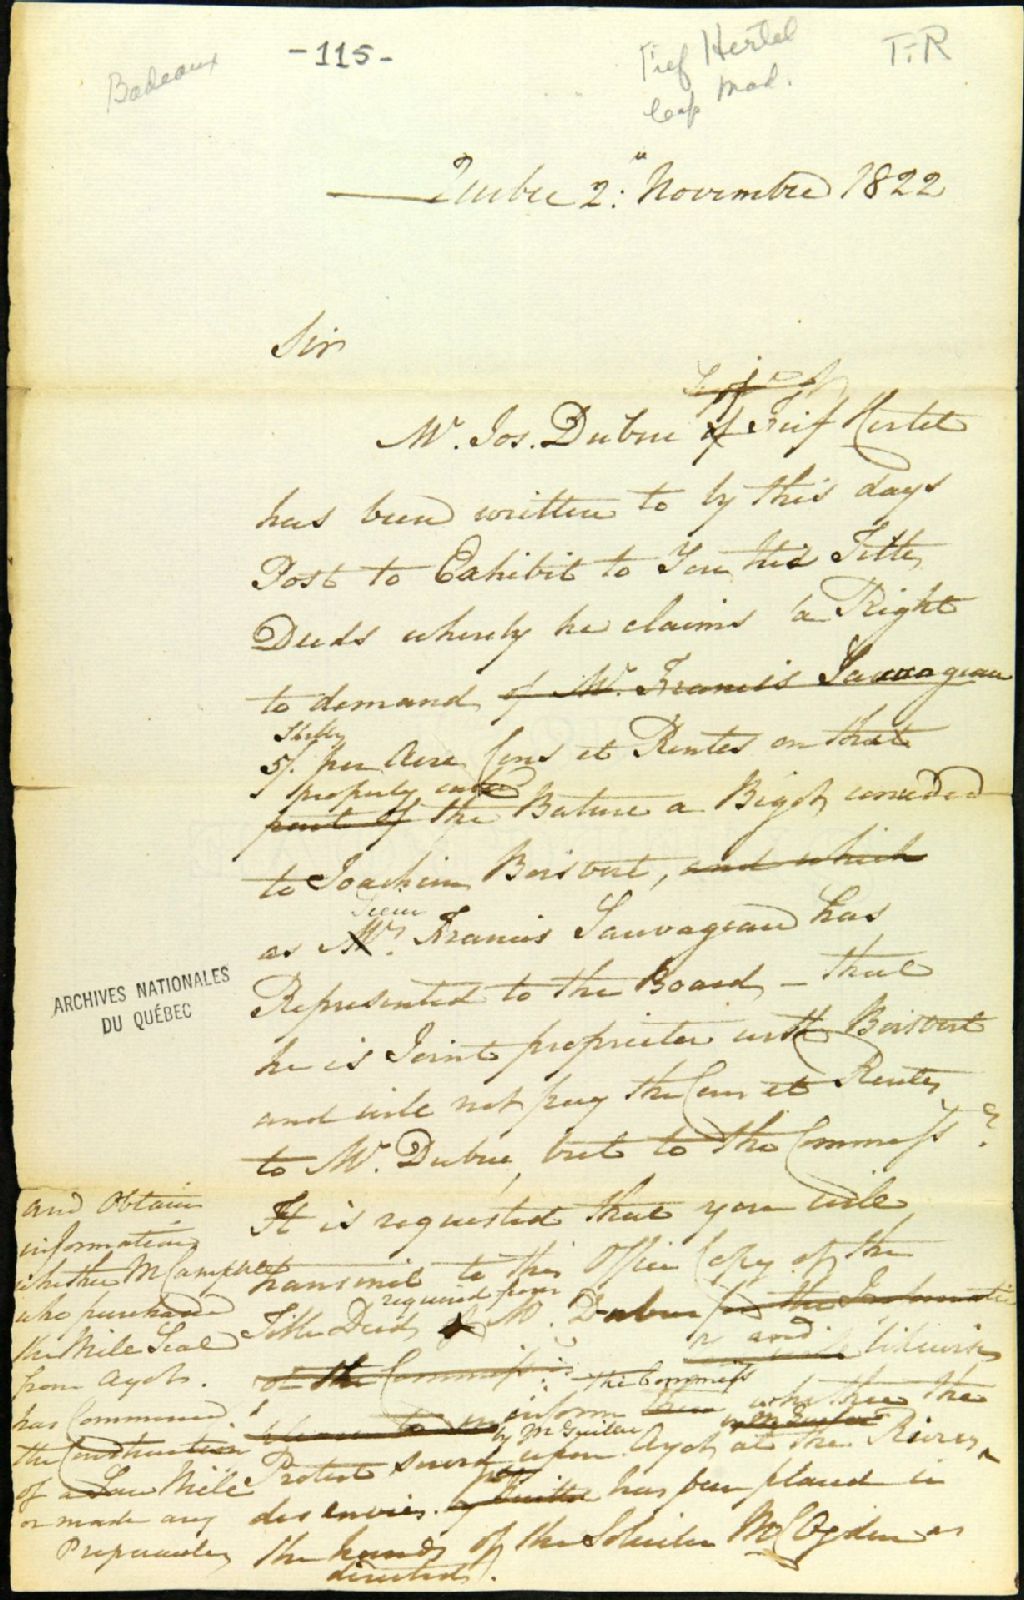 Badeaux
- 115 -
Fief Hertel
Cap Mad.
T-R
Quebec 2: Novembre 1822
Sir
Mr. Jos. Dubuc of Feif Hertel
has been written to by this days
Post to Exhibit to You his Title
Deeds whereby he claims a Right
to demand of Mr. Francis Sauvageau
5/. per Acre Cens et Rentes on that
property called
part of the Bature a Bigot conceded
to Joachim Boisvert, and which
Sieur
as Mr. Francis Sauvageau has
Represented to the Board - that
he is Joint proprietor with Boisvert
and will not pay the Cens et Rentes
to Mr. Dubuc, but to the Commissrs
It is requested that you will
transmit to this Office Copy of the
required from
Title Deeds of Mr. Dubuc for the Information
and likewise
of the Commiss
the Commissrs
please to inform whether the
by Mr Guillet
Protest served upon Ayot at the Rivers
des envies has been placed in
the hands of the Solicitor Mr Ogden as
directed.
and Obtain
information
whether Mr Campbell
who purchased
the Mill Seat
from Ayot.
has Commenced
the Construction
of a Saw Mill
or made any
Preparation
ARCHIVES NATIONALES
DU QUÉBEC